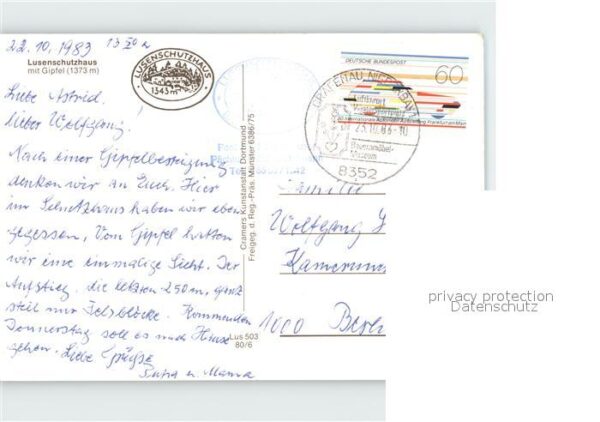 22.10.1983 13 00
Lusenschutzhaus
mit Gipfel (1373 m)
LUSENSCHUTZHAUS
1343 m
DEUTSCHE BUNDESPOST
60
GRAFENAU
23.10.83-10
Bauernmöbel-
Museum
8352
Liebe Astrid,
lieber Wolfgang,
Nach einer Gipfelbesteigung
denken wir an Euch. Hier
im Schutzhaus haben wir eben
gegessen. Vom Gipfel hatten
wir eine einmalige Sicht. Der
Aufstieg, die letzten 250 m, ganz
steil nur Felsblöcke. Kommenden
Donnerstag soll es nach Hause
gehen. Liebe Grüße
u. Mama
Cramers Kunstanstalt Dortmund
Freigeg. d. Reg.-Präs. Münster 6386/75
Lus 503
80/6
Familie
Wolfgang
1000 Berl
privacy protection
Datenschutz